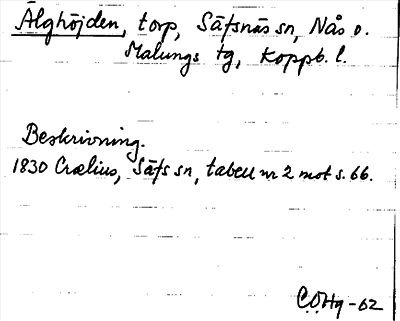 Älghöjden, torp, Säfsnäs sn, Nås o.
Malungs tg, Koppb. l.
Beskrivning.
1830 Crælius, Säfs sn, tabell nr 2 mot s. 66.
C.Ö.Hg -62